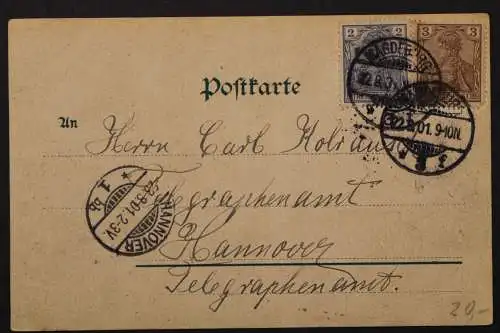 2
3
MAGDEBURG
22.8.01. 9-10N.
Postkarte
An
Herrn Carl
Telegraphenamt
Hannover
Telegraphenamt.
HANNOVER
23.8.01.2-3V.
* 1. *
20,-